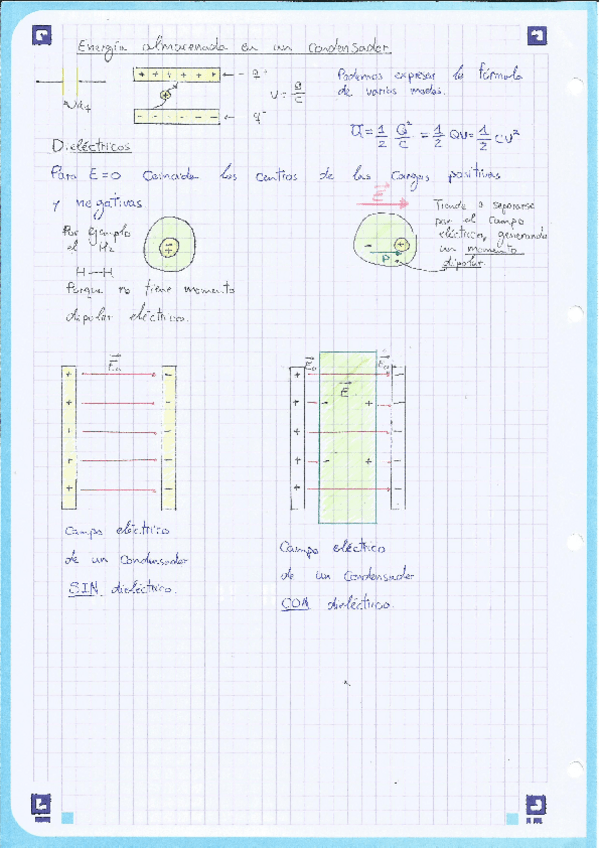 Energía almacenada en un Condensador
+ + + + + + ← q⁺
V = Q/C
- - - - - - ← q⁻
Podemos expresar la fórmula
de varios modos.
U = 1/2 Q²/C = 1/2 QV = 1/2 CV²
Dieléctricos
Para E=0 Coincide los centros de las Cargas positivas
y negativas
Por ejemplo
el H₂
H—H
Porque no tiene momento
dipolar eléctrico.
E
Tiende a separarse
por el campo
eléctrico, generando
un momento
dipolar
- +
P
E₀
E₀ E₀
E
Campo eléctrico
de un Condensador
SIN dieléctrico.
Campo eléctrico
de un Condensador
CON dieléctrico.